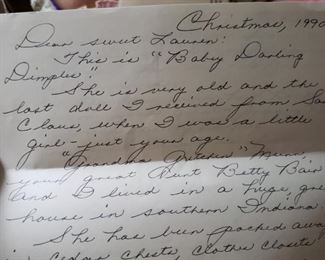 Christmas, 1990
Dear sweet Lauren:
This is "Baby Darling
Dimples."
She is very old and the
last doll I received from San
Claus, when I was a little
girl - just your age.
"Grandia Gritchin" Mumi,
your great Aunt Betty Bain
and I lived in a huge, gre
house in southern Indiana.
She has been packed awa
in Cedar Chests, clothes closets